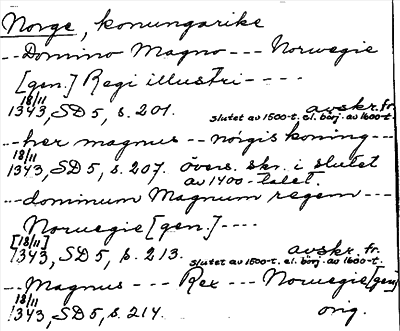 Norge, konungarike
--Domino Magno --- Norwegie
[gen.] Regi illustri ----
18/11
1343, SD 5, s. 201. avskr. fr.
slutet av 1500-t. el. börj. av 1600-t.
--her magnus -- nörgis koning ---
18/11
1343, SD 5, s. 207. övers. skr. i slutet
av 1400-talet.
---dominum Magnum regem ---
Norwegie [gen.] ----
[18/11]
1343, SD 5, s. 213. avskr. fr.
slutet av 1500-t. el. börj. av 1600-t.
--Magnus --- Rex --- Norwegie [gen]
18/11
1343, SD 5, s. 214. orig.